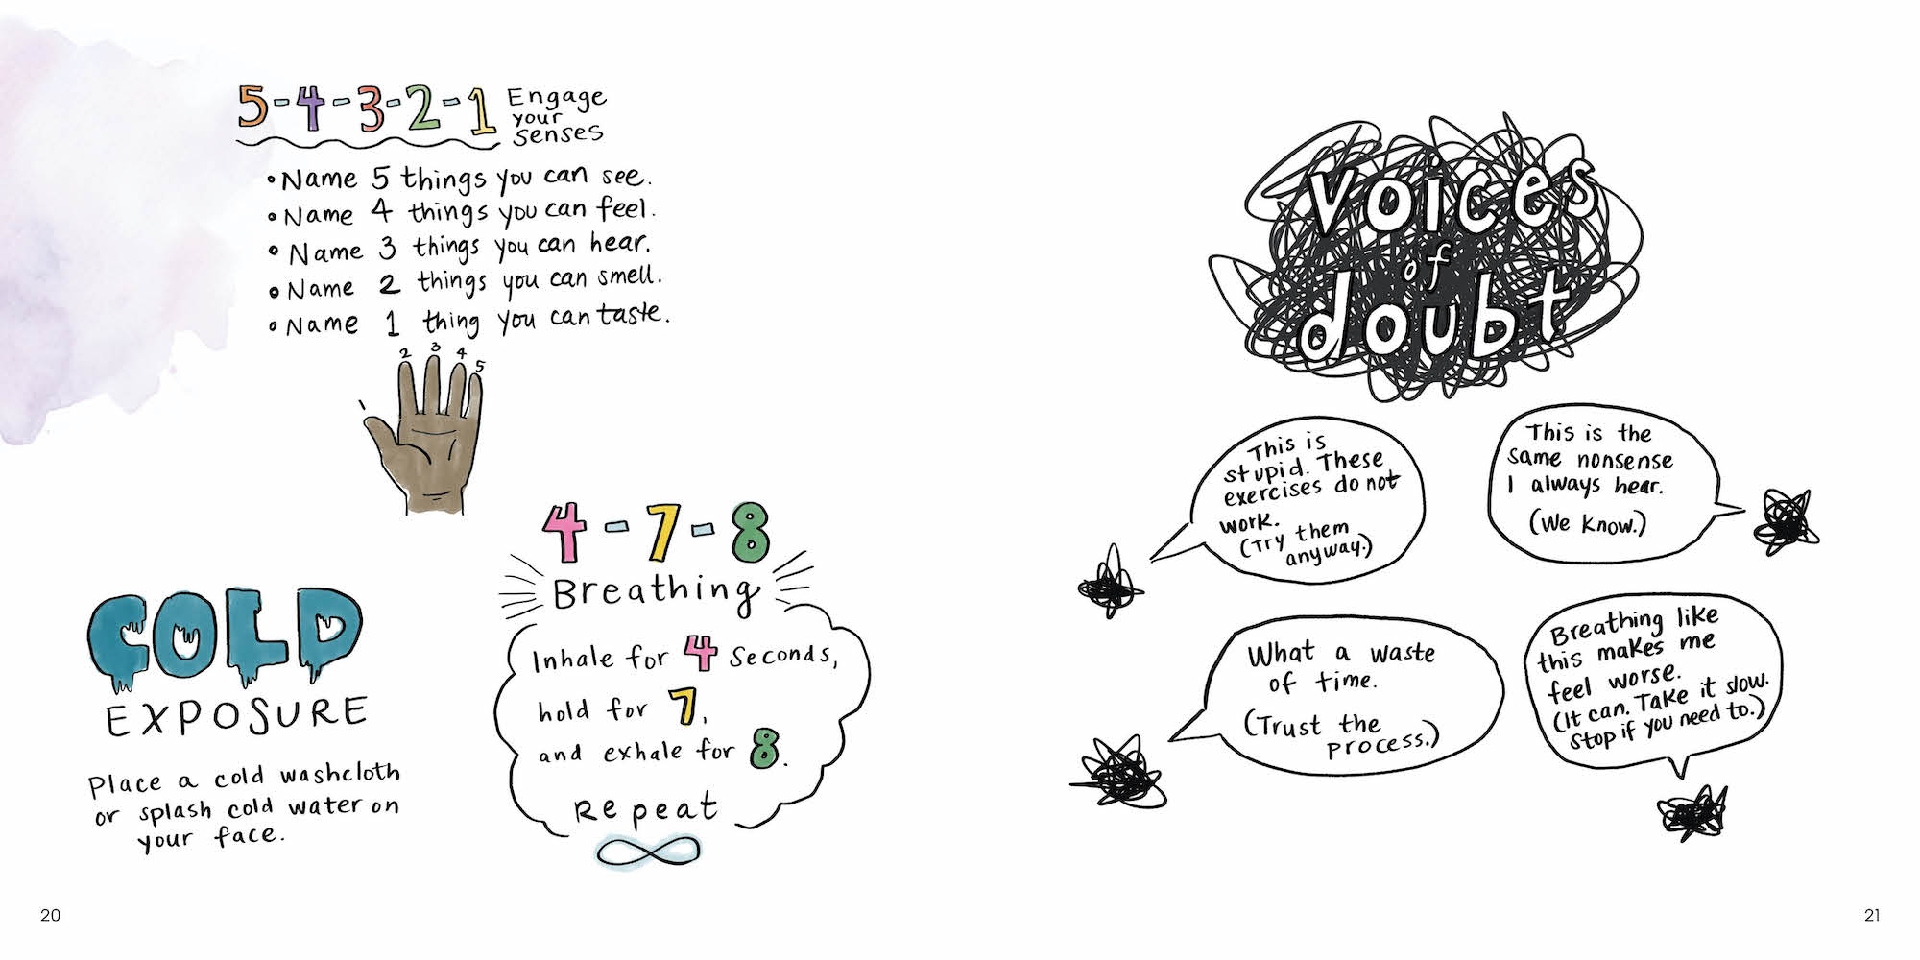 5-4-3-2-1 Engage
your
senses
•Name 5 things you can see.
•Name 4 things you can feel.
•Name 3 things you can hear.
•Name 2 things you can smell.
•Name 1 thing you can taste.
1 2 3 4 5
COLD
EXPOSURE
Place a cold washcloth
or splash cold water on
your face.
4-7-8
Breathing
Inhale for 4 seconds,
hold for 7,
and exhale for 8.
Repeat
20
voices
of
doubt
This is
stupid. These
exercises do not
work.
(Try them
anyway.)
This is the
same nonsense
I always hear.
(We know.)
What a waste
of time.
(Trust the
process.)
Breathing like
this makes me
feel worse.
(It can. Take it slow.
Stop if you need to.)
21